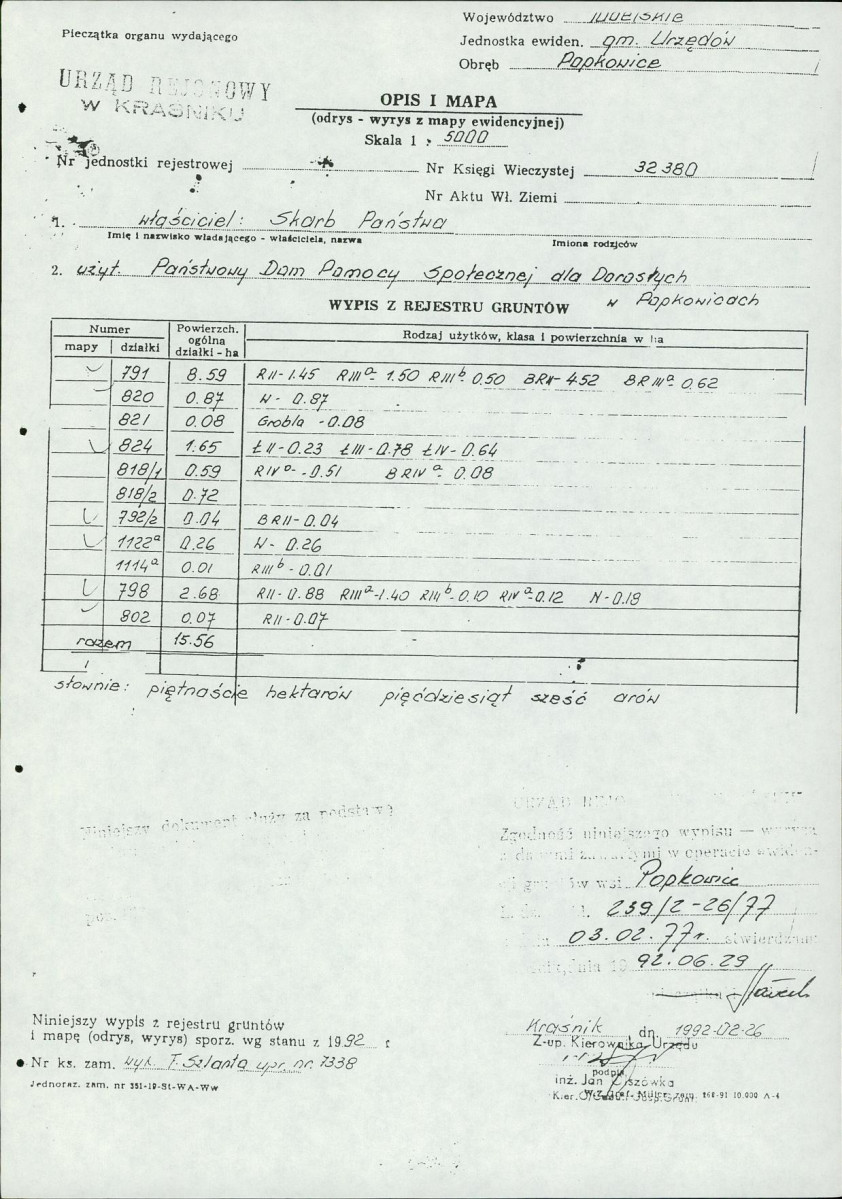 Województwo lubelskie
Pieczątka organu wydającego
Jednostka ewiden. gm. Urzędów
Obręb Popkowice
URZĄD REJONOWY
W KRAŚNIKU
OPIS I MAPA
(odrys - wyrys z mapy ewidencyjnej)
Skala 1 : 5000
Nr jednostki rejestrowej
Nr Księgi Wieczystej 32380
Nr Aktu Wł. Ziemi
1. właściciel: Skarb Państwa
Imię i nazwisko władającego - właściciela, nazwa Imiona rodziców
2. użyt. Państwowy Dom Pomocy Społecznej dla Dorosłych
WYPIS Z REJESTRU GRUNTÓW w Popkowicach
Numer mapy działki Powierzch. ogólna działki - ha Rodzaj użytków, klasa i powierzchnia w ha
791 8.59 RII-1.45 RIIIa-1.50 RIIIb-0.50 BRII-4.52 BRIIIa-0.62
820 0.87 W-0.87
821 0.08 Grobla -0.08
824 1.65 ŁII-0.23 ŁIII-0.78 ŁIV-0.64
818/1 0.59 RIVa-0.51 BRIVa-0.08
818/2 0.72
792/2 0.04 BRII-0.04
1122a 0.26 W-0.26
1114a 0.01 RIIIb-0.01
798 2.68 RII-0.88 RIIIa-1.40 RIIIb-0.10 RIVa-0.12 N-0.18
802 0.07 RII-0.07
razem 15.56
słownie: piętnaście hektarów pięćdziesiąt sześć arów
Niniejszy dokument służy za podstawę
URZĄD
Zgodność niniejszego wypisu — wyrysu
z danymi zawartymi w operacie ewiden-
cji gruntów wsi Popkowice
239/2-26/77
03.02.77r. stwierdzam
dnia 19 92.06.29
Niniejszy wypis z rejestru gruntów
i mapę (odrys, wyrys) sporz. wg stanu z 1992 r
Nr ks. zam. wyk. T. Szlanta upr. nr. 7338
Jednoraz. zam. nr 351-19-St-WA-Ww
Kraśnik dn. 1992-02-26
Z-up. Kierownika Urzędu
podpis
inż. Jan Ciszówka
zam. 268-91 10.000 A-4